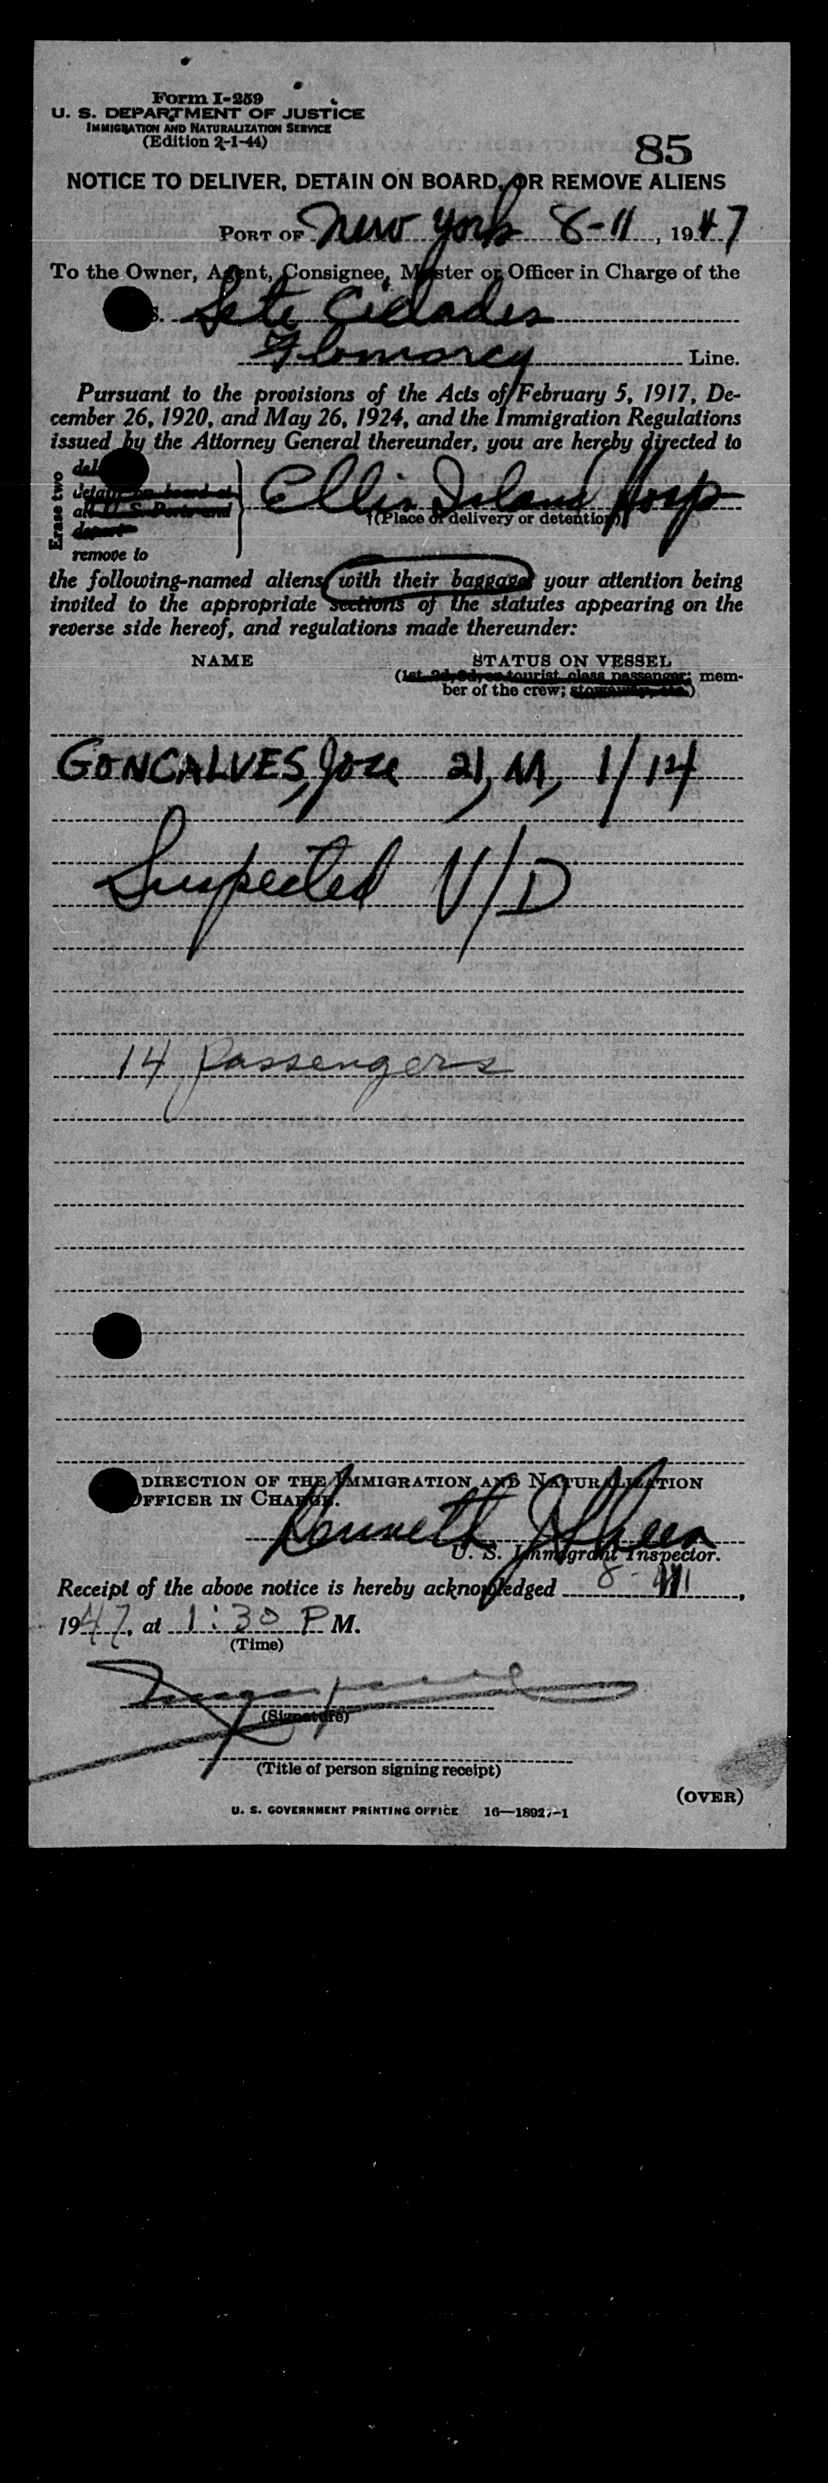 Form I-259
U. S. DEPARTMENT OF JUSTICE
IMMIGRATION AND NATURALIZATION SERVICE
(Edition 2-1-44)
85
NOTICE TO DELIVER, DETAIN ON BOARD, OR REMOVE ALIENS
PORT OF New York 8-11, 1947
To the Owner, Agent, Consignee, Master or Officer in Charge of the
S. Sete Cidades
Line.
Pursuant to the provisions of the Acts of February 5, 1917, De-
cember 26, 1920, and May 26, 1924, and the Immigration Regulations
issued by the Attorney General thereunder, you are hereby directed to
Erase two
del
detain on board at
all U. S. Ports and
deport
remove to
Ellis Island Hosp
(Place of delivery or detention)
the following-named aliens with their baggage your attention being
invited to the appropriate sections of the statutes appearing on the
reverse side hereof, and regulations made thereunder:
NAME STATUS ON VESSEL
(1st, 2d, 3d, or tourist class passenger; mem-
ber of the crew; stowaway, etc.)
GONCALVES, Jose 21, M, 1/14
Suspected V/D
14 passengers
DIRECTION OF THE IMMIGRATION AND NATURALIZATION
OFFICER IN CHARGE.
Kenneth J Shea
U. S. Immigrant Inspector.
Receipt of the above notice is hereby acknowledged 8-11,
1947, at 1:30 P M.
(Time)
(Signature)
(Title of person signing receipt)
(OVER)
U. S. GOVERNMENT PRINTING OFFICE 16—18927-1